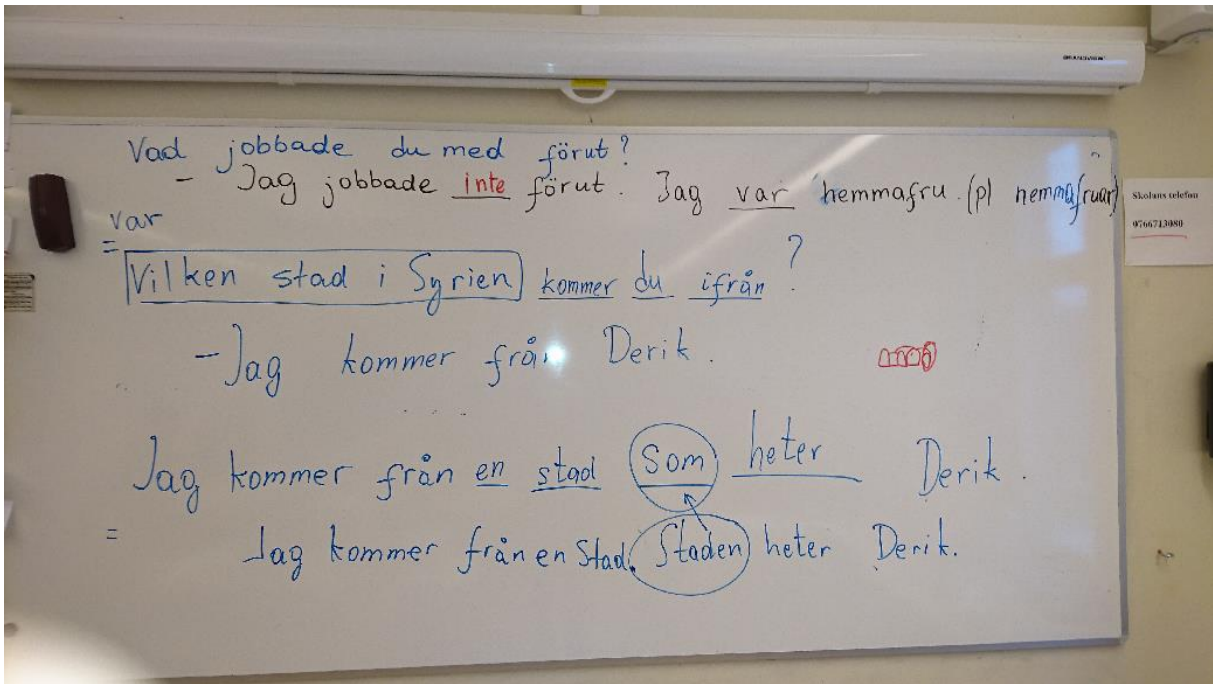 Vad jobbade du med förut?
- Jag jobbade inte förut. Jag var hemmafru. (pl hemmafruar)
var
=
Vilken stad i Syrien kommer du ifrån?
- Jag kommer från Derik.
Jag kommer från en stad som heter Derik.
= Jag kommer från en stad. Staden heter Derik.
Skolans telefon
0766713080